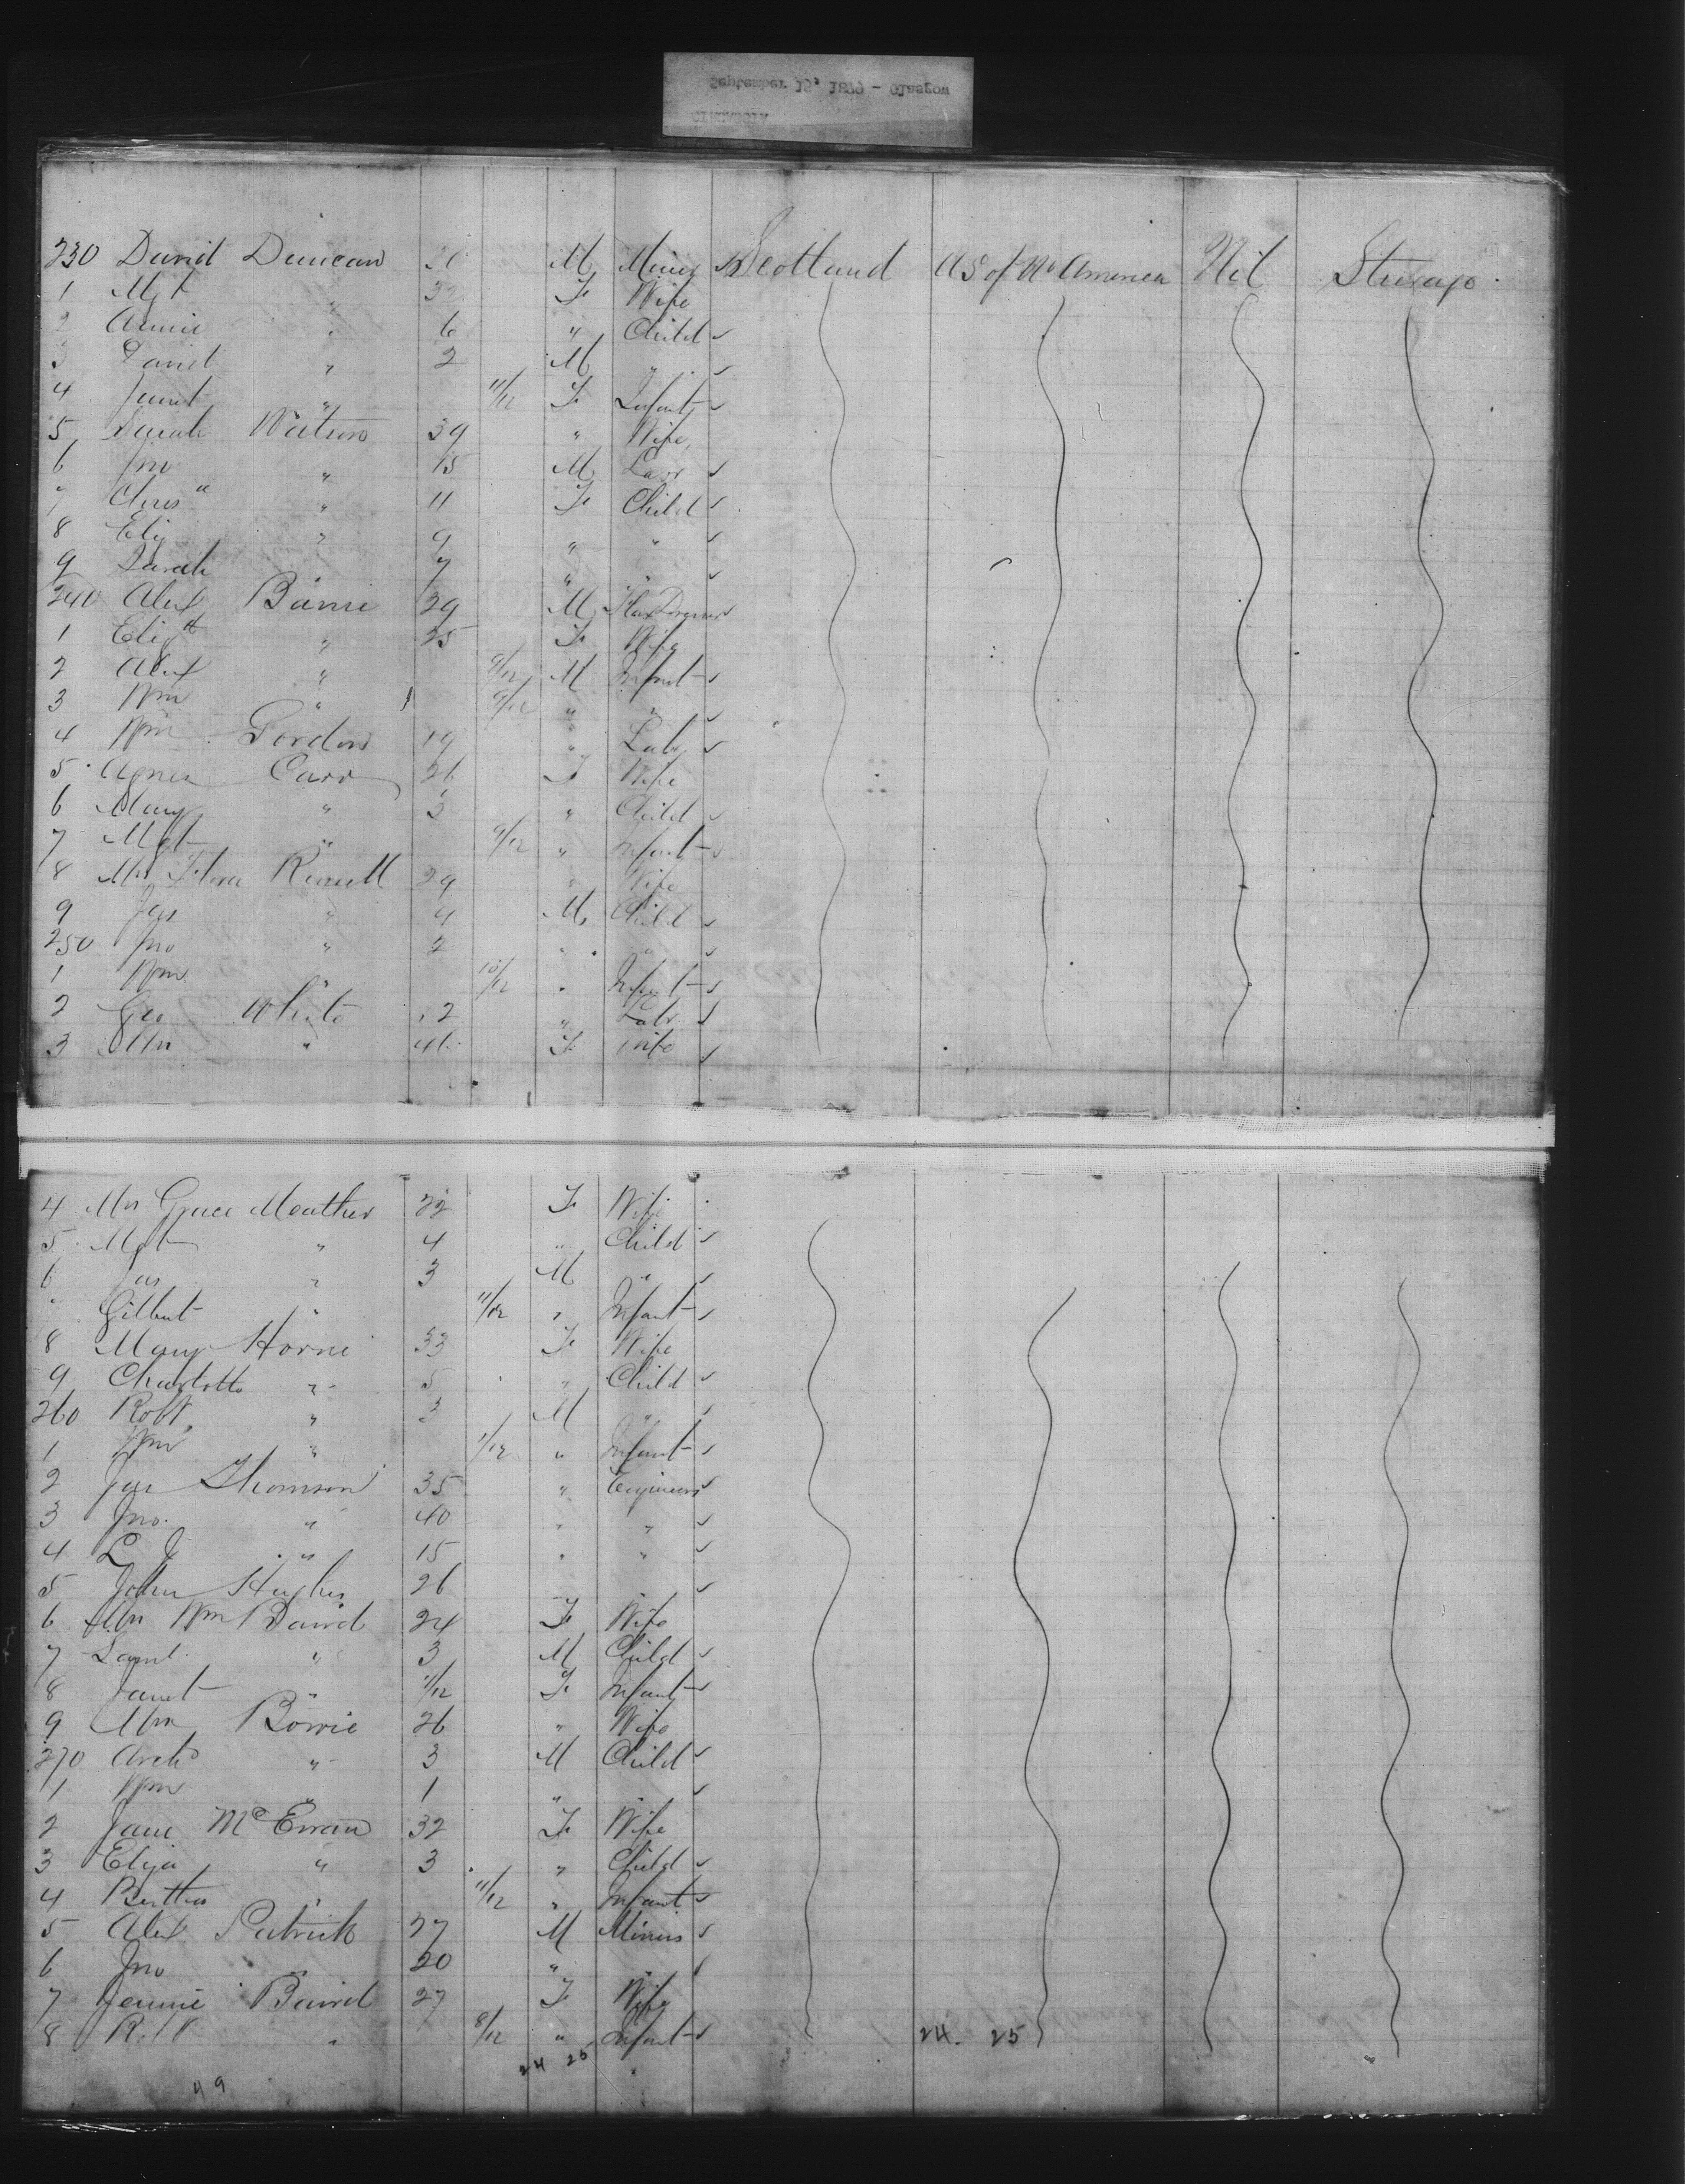 September 19, 1879 - Glasgow
230 David Duncan M Miner Scotland US of No America Nil Steerage
1 Mgt " 32 F Wife
2 Annie " 6 " Child
3 David " 2 M "
4 Janet " 11/12 F Infant
5 Sarah Watson 39 " Wife
6 Jno " 15 M Labr
7 Chrisa " 11 F Child
8 Eliz " 9 " "
9 Sarah " 7 " "
240 Alex Barrie 29 M Flax Dresser
1 Elizth " 25 F Wife
2 Alex " 9/12 M Infant
3 Wm " 9/12 " "
4 Wm Gordon 19 " Labr
5 Agnes Carr 26 F Wife
6 Mary " 3 " Child
7 Mgt " 9/12 " Infant
8 Mrs Flora Russell 29 " Wife
9 Jas " 4 M Child
250 Jno " 2 " "
1 Wm " 10/12 " Infant
2 Geo White " Labr
3 Mrs " F Wife
4 Mrs Grace Meather 22 F Wife
5 Mgt " 4 " Child
6 Jas " 3 M "
Gilbert " 11/12 " Infant
8 Mary Horne 33 F Wife
9 Charlotte " 5 " Child
260 Robt " 3 M "
1 Wm " 1/12 " Infant
2 Jas Thomson 35 " Engineers
3 Jno. " 40 " "
4 L J " 15 " "
5 John Hughes 26
6 Mrs Wm Baird 24 F Wife
7 Saml. " 3 M Child
8 Janet " 11/12 F Infant
9 Mrs Bowie 26 " Wife
270 Archd " 3 M Child
1 Wm " 1 " "
2 Jane McEwan 32 F Wife
3 Eliza " 3 " Child
4 Bertha " 11/12 " Infant
5 Alex Patrick 27 M Miners
6 Jno " 20 " "
7 Jennie Baird 27 F Wife
8 Robt " 8/12 " Infant 24. 25
24 25
49